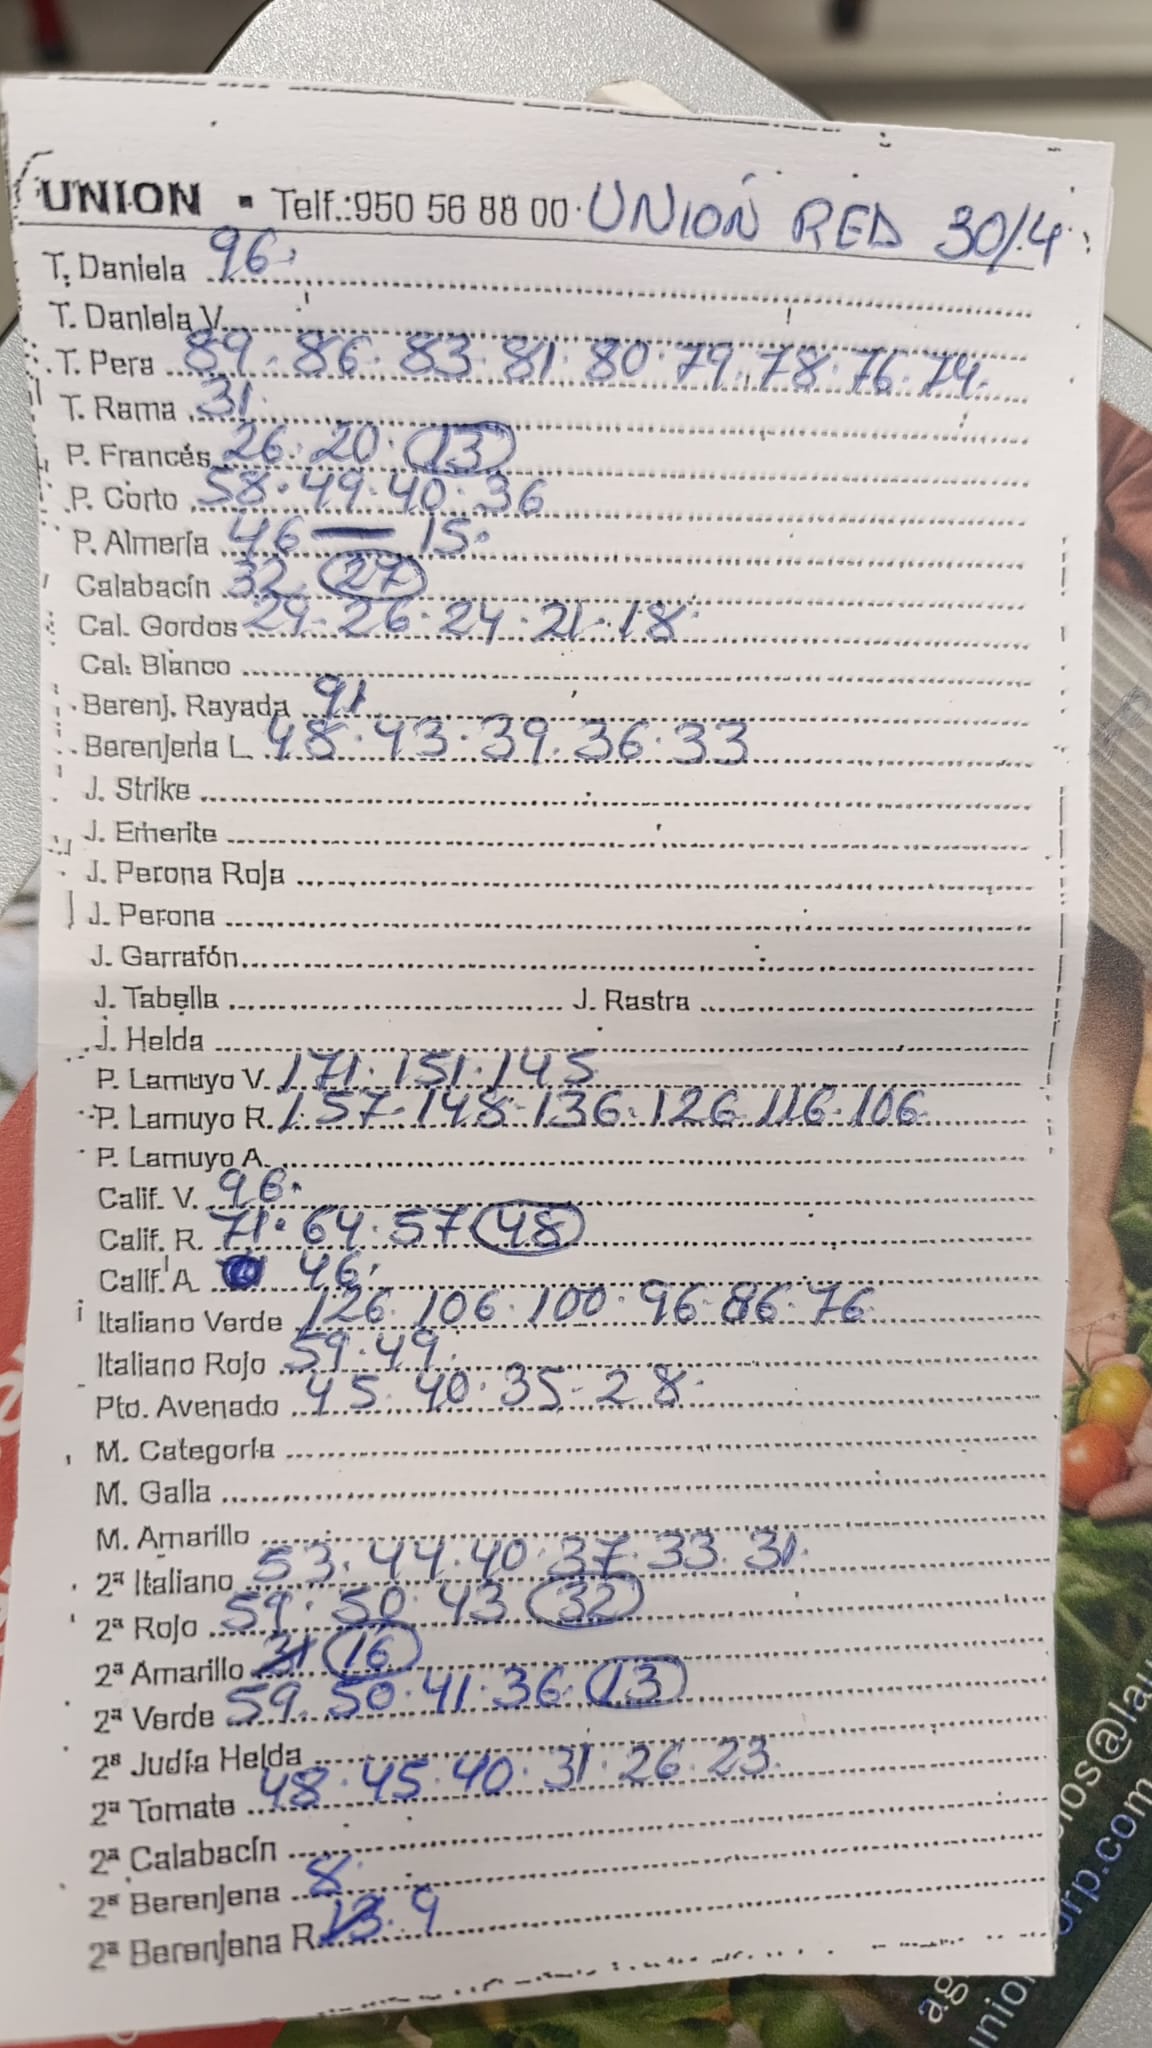 UNION · Telf.:950 56 88 00· UNION RED 30/4
T. Daniela 96.
T. Daniela V.
T. Pera 89. 86. 83. 81. 80. 79. 78. 76. 74.
T. Rama 31.
P. Francés 26. 20. 13
P. Corto 58. 49. 40. 36
P. Almería 46 — 15.
Calabacín 32. 27
Cal. Gordos 29. 26. 24. 21. 18.
Cal. Blanco
Berenj. Rayada 91
Berenjena L. 48. 43. 39. 36. 33
J. Strike
J. Emerite
J. Perona Roja
J. Perona
J. Garrafón
J. Tabella J. Rastra
J. Helda
P. Lamuyo V. 171. 151. 145
P. Lamuyo R. 157. 148. 136. 126. 116. 106.
P. Lamuyo A.
Calif. V. 96.
Calif. R. 71. 64. 57 48
Calif. A. 46.
Italiano Verde 126. 106. 100. 96. 86. 76
Italiano Rojo 59. 49.
Pto. Avenado 45. 40. 35. 28.
M. Categoría
M. Galia
M. Amarillo
2ª Italiano 53. 44. 40. 37. 33. 31.
2ª Rojo 59. 50. 43 32
2ª Amarillo 31 16
2ª Verde 59. 50. 41. 36. 13
2ª Judía Helda
2ª Tomate 48. 45. 40. 31. 26. 23.
2ª Calabacín
2ª Berenjena 8.
2ª Berenjena R. 13. 9